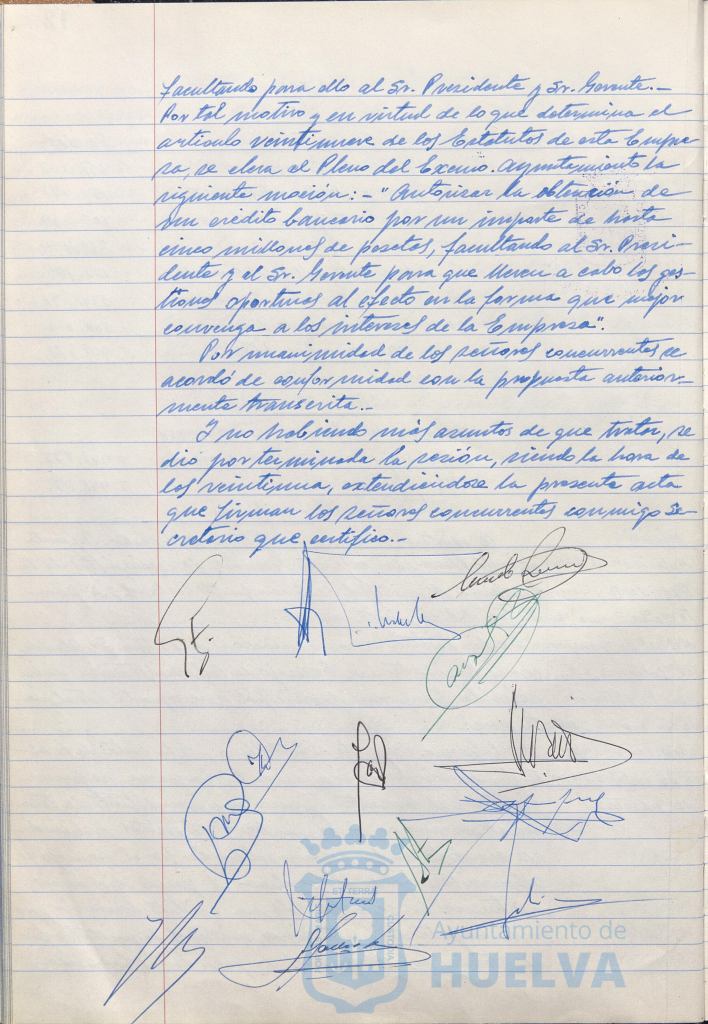 facultando para ello al Sr. Presidente y Sr. Gerente.-
Por tal motivo y en virtud de lo que determina el
artículo veintinueve de los Estatutos de esta Empre-
sa, se eleva el Pleno del Excmo. Ayuntamiento la
siguiente moción:- "Autorizar la obtención de
un crédito bancario por un importe de hasta
cinco millones de pesetas, facultando al Sr. Presi-
dente y el Sr. Gerente para que lleven a cabo las ges-
tiones oportunas al efecto en la forma que mejor
convenga a los intereses de la Empresa".
Por unanimidad de los señores concurrentes se
acordó de conformidad con la propuesta anterior-
mente transcrita.-
Y no habiendo más asuntos de que tratar, se
dió por terminada la sesión, siendo la hora de
las veintiuna, extendiéndose la presente acta
que firman los señores concurrentes conmigo Se-
cretario que certifico.-
Ayuntamiento de
HUELVA